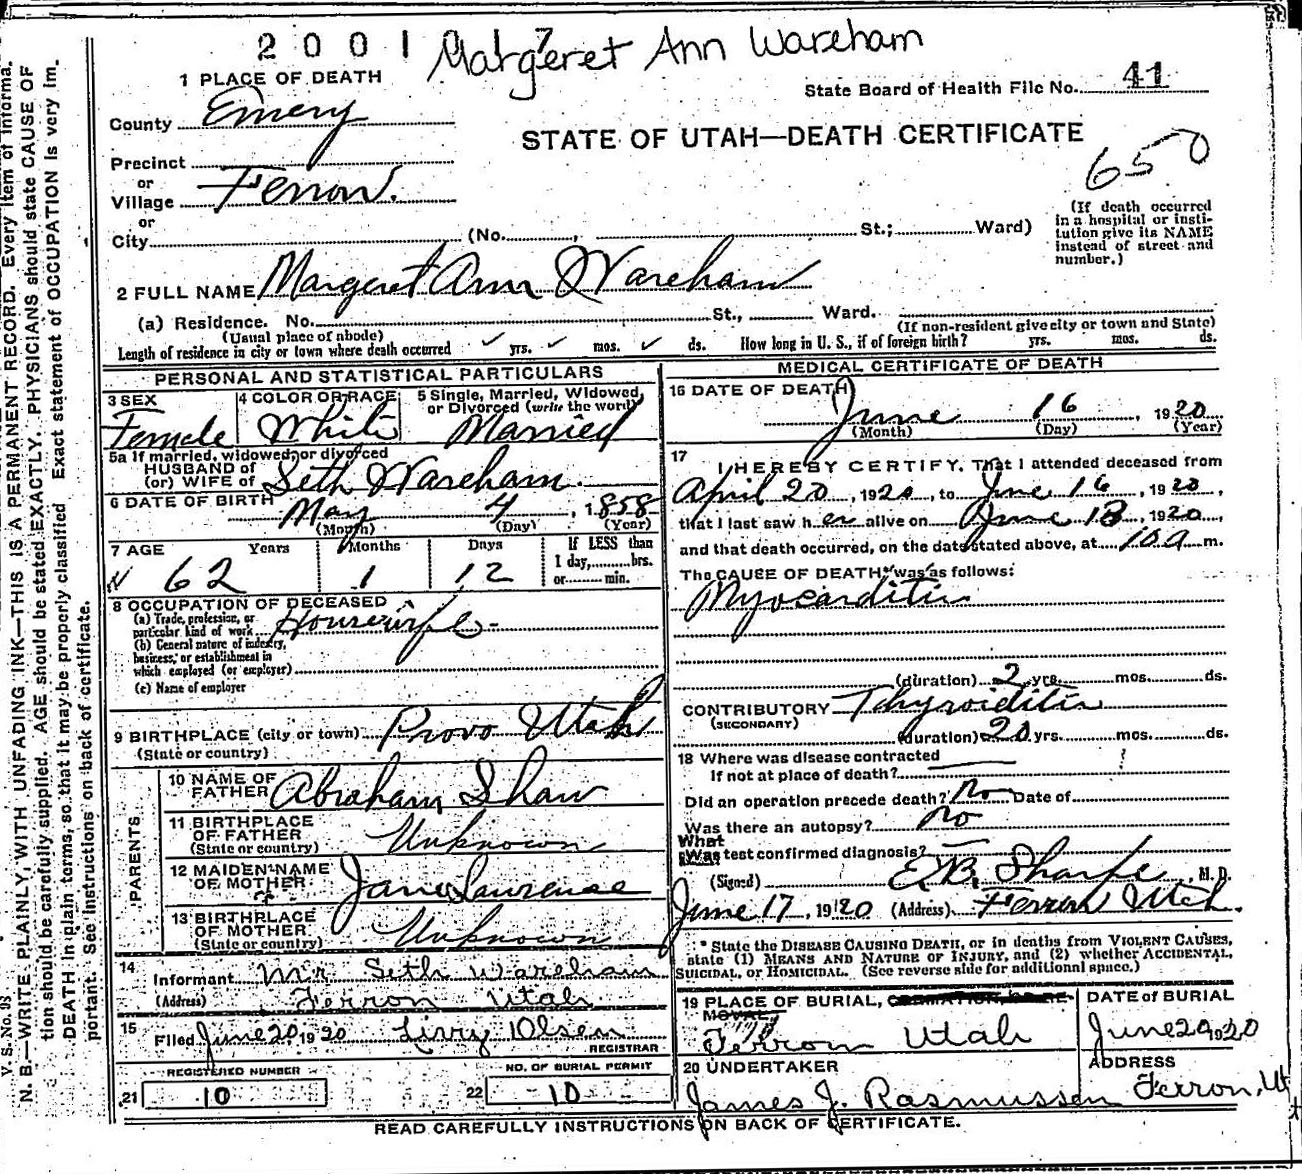 2 0 0 1 0 1 7
Margeret Ann Wareham
1 PLACE OF DEATH
State Board of Health File No. 41
County Emery
STATE OF UTAH—DEATH CERTIFICATE
650
Precinct
or
Village Ferron.
or
City (No. , St.; Ward)
(If death occurred
in a hospital or insti-
tution give its NAME
instead of street and
number.)
2 FULL NAME Margeret Ann Wareham
(a) Residence. No. St., Ward.
(Usual place of abode)
(If non-resident give city or town and State)
Length of residence in city or town where death occurred ✓ yrs. ✓ mos. ✓ ds. How long in U. S., if of foreign birth? yrs. mos. ds.
PERSONAL AND STATISTICAL PARTICULARS
3 SEX
Female
4 COLOR OR RACE
White
5 Single, Married, Widowed,
or Divorced (write the word)
Married
5a If married, widowed, or divorced
HUSBAND of
(or) WIFE of Seth Wareham.
6 DATE OF BIRTH May 4, 1858
(Month) (Day) (Year)
7 AGE Years Months Days If LESS than
1 day, hrs.
or min.
62 1 12
8 OCCUPATION OF DECEASED
(a) Trade, profession, or
particular kind of work Housewife
(b) General nature of industry,
business, or establishment in
which employed (or employer)
(c) Name of employer
9 BIRTHPLACE (city or town) Provo Utah
(State or country)
PARENTS
10 NAME OF
FATHER Abraham Shaw
11 BIRTHPLACE
OF FATHER
(State or country) Unknown
12 MAIDEN NAME
OF MOTHER Jane Lawrence
13 BIRTHPLACE
OF MOTHER
(State or country) Unknown
14
Informant Mr Seth Wareham
(Address) Ferron Utah
15
Filed June 20 1920 Olsen
REGISTRAR
REGISTERED NUMBER
21 10
NO. OF BURIAL PERMIT
22 10
MEDICAL CERTIFICATE OF DEATH
16 DATE OF DEATH
June 16, 1920
(Month) (Day) (Year)
17
I HEREBY CERTIFY, That I attended deceased from
April 20, 1920, to June 16, 1920,
that I last saw her alive on June 13, 1920,
and that death occurred, on the date stated above, at 10 a m.
The CAUSE OF DEATH* was as follows:
Myocarditis
(duration) 2 yrs. mos. ds.
CONTRIBUTORY Thyroiditis
(SECONDARY)
(duration) 20 yrs. mos. ds.
18 Where was disease contracted
if not at place of death?
Did an operation precede death? No Date of
Was there an autopsy? No
What
Was test confirmed diagnosis? —
(Signed) E. B. Sharpe, M. D.
June 17, 1920 (Address) Ferron Utah.
* State the DISEASE CAUSING DEATH, or in deaths from VIOLENT CAUSES,
state (1) MEANS AND NATURE OF INJURY, and (2) whether ACCIDENTAL,
SUICIDAL, or HOMICIDAL. (See reverse side for additional space.)
19 PLACE OF BURIAL, CREMATION, OR RE-
MOVAL
Ferron Utah
DATE of BURIAL
June 20 1920
20 UNDERTAKER
James J. Rasmussen
ADDRESS
Ferron, Ut
READ CAREFULLY INSTRUCTIONS ON BACK OF CERTIFICATE.
V. S. No. 98
N. B.—WRITE PLAINLY, WITH UNFADING INK—THIS IS A PERMANENT RECORD. Every item of informa-
tion should be carefully supplied. AGE should be stated EXACTLY. PHYSICIANS should state CAUSE OF
DEATH in plain terms, so that it may be properly classified. Exact statement of OCCUPATION is very im-
portant. See instructions on back of certificate.